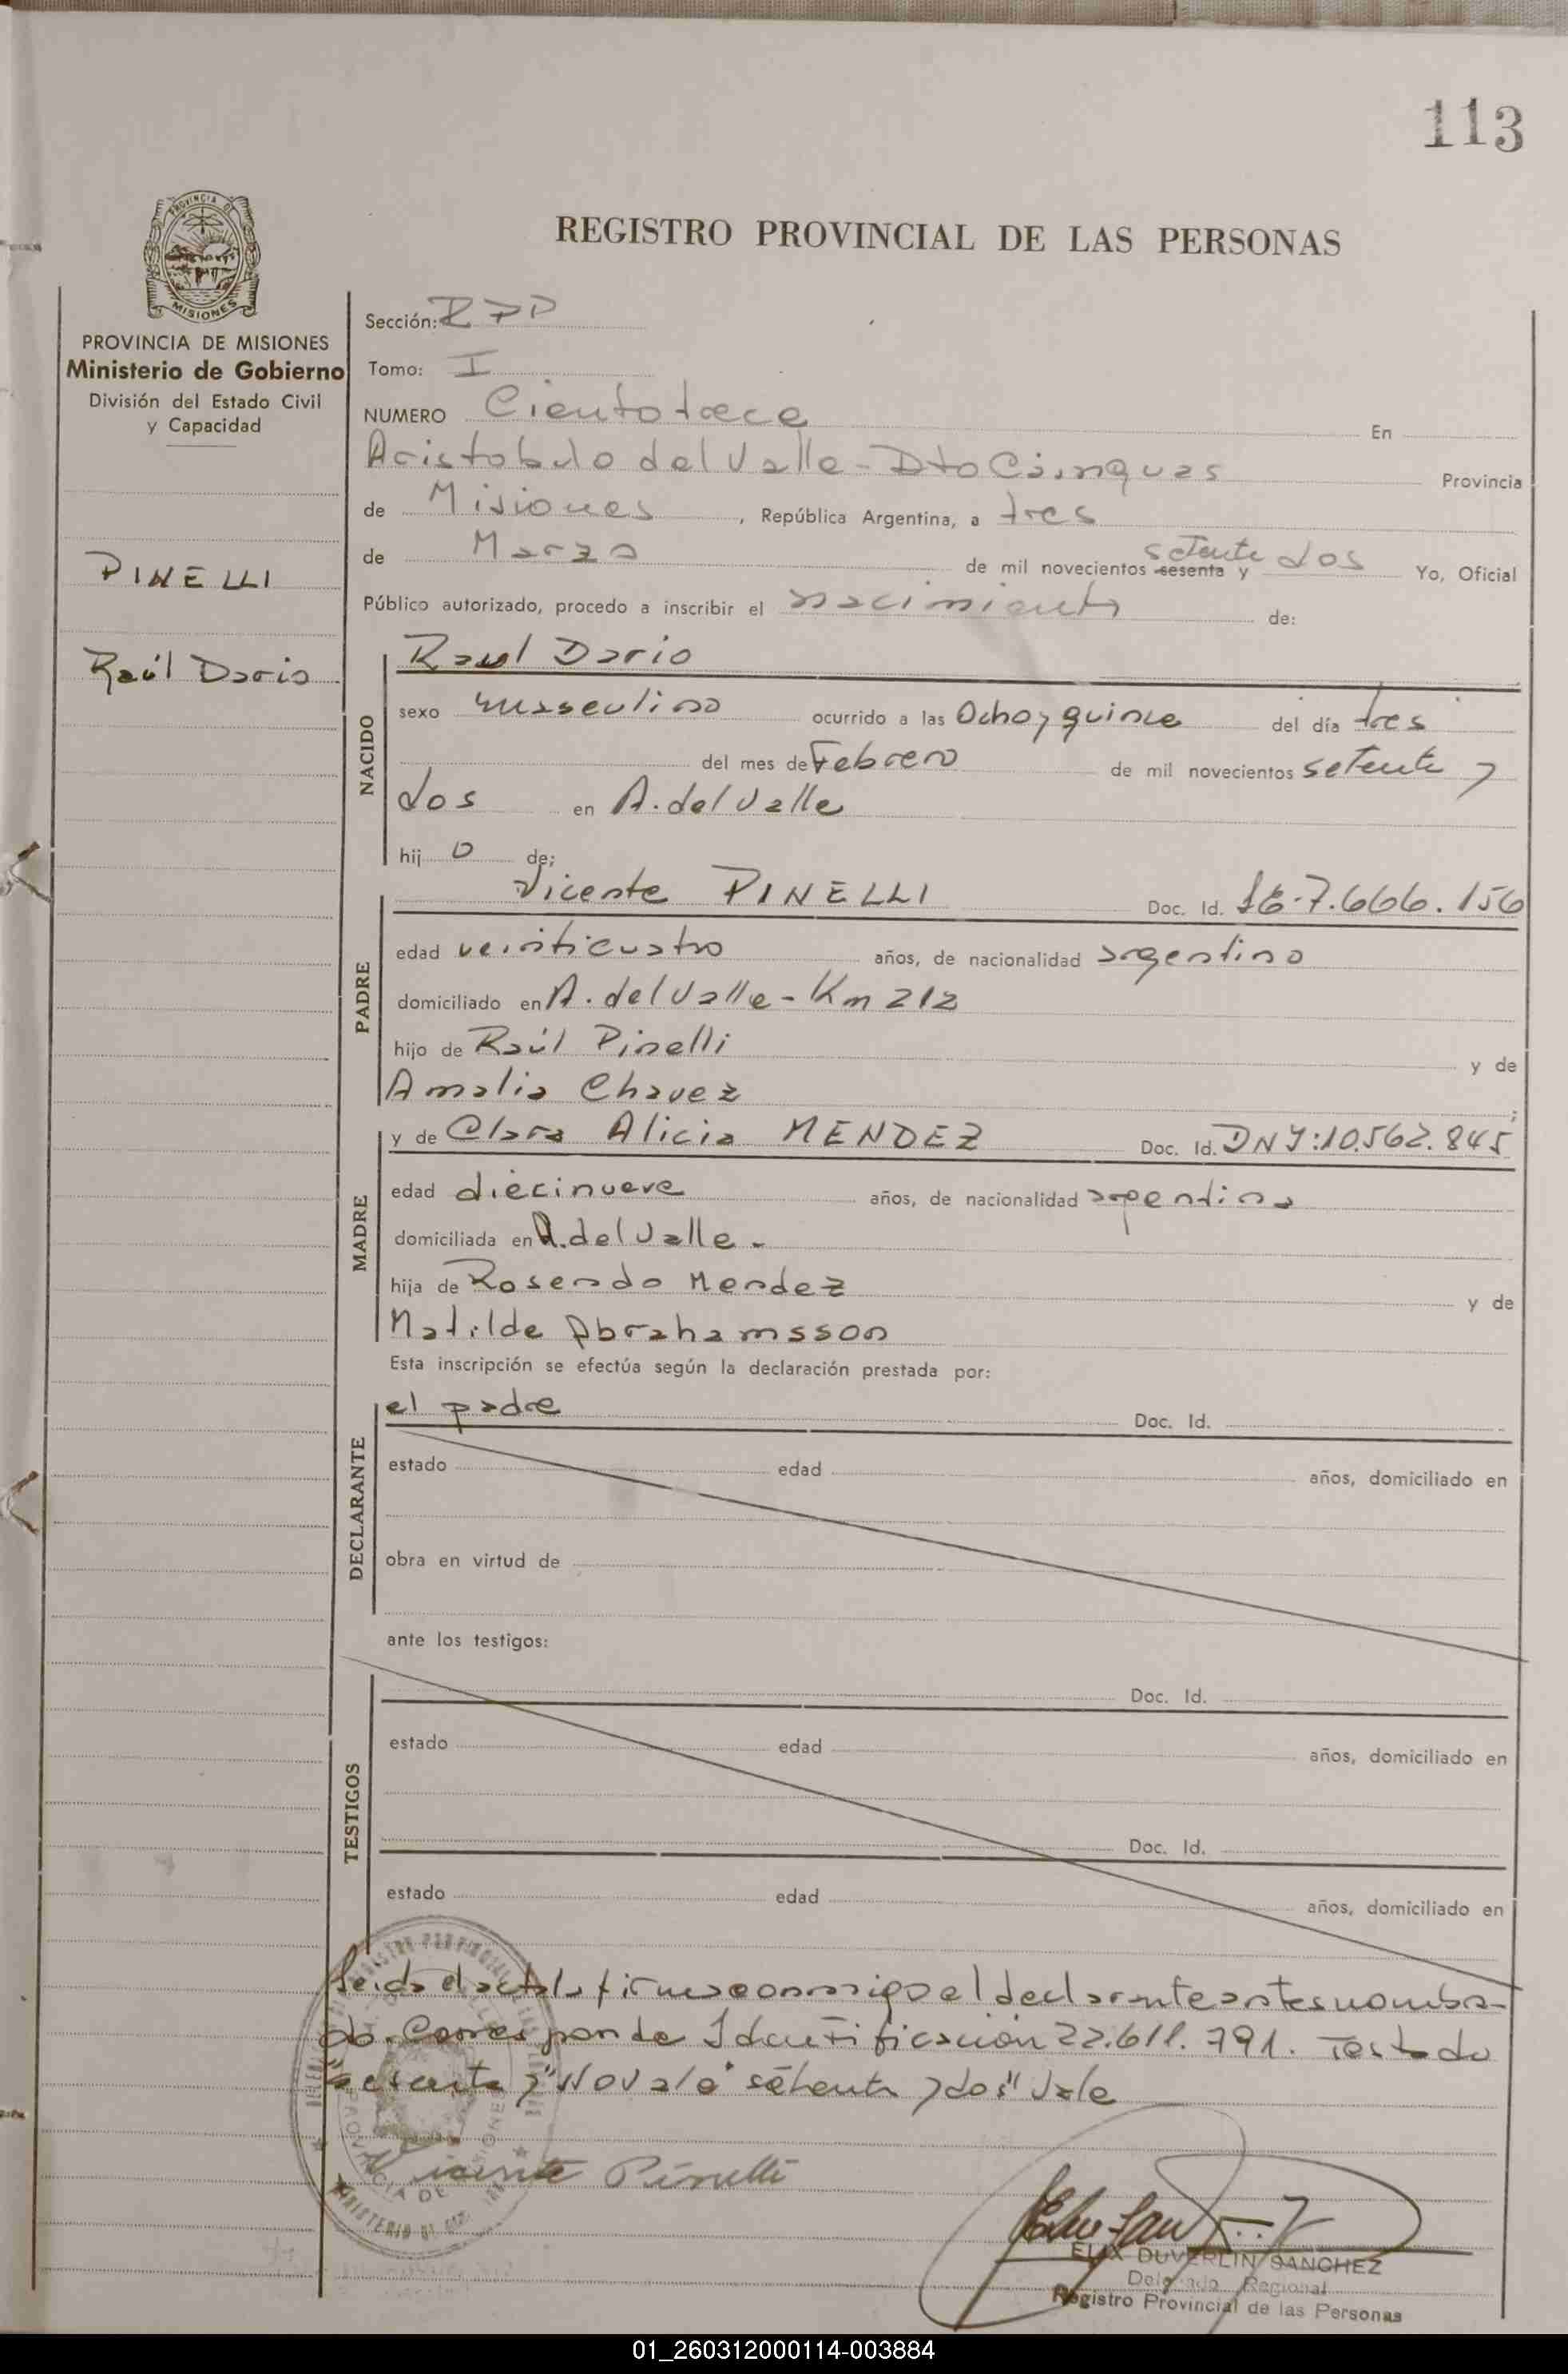 113
REGISTRO PROVINCIAL DE LAS PERSONAS
PROVINCIA DE
MISIONES
PROVINCIA DE MISIONES
Ministerio de Gobierno
División del Estado Civil
y Capacidad
PINELLI
Raúl Dario
Sección: RPP
Tomo: I
NUMERO Ciento trece En
Aristobulo del Valle - Dto Cainguas Provincia
de Misiones, República Argentina, a tres
de Marzo de mil novecientos sesenta setenta y dos Yo, Oficial
Público autorizado, procedo a inscribir el nacimiento de:
NACIDO
Raul Dario
sexo masculino ocurrido a las Ocho y quince del día tres
del mes de Febrero de mil novecientos setenta y
dos en A. del Valle
hij o de;
PADRE
Vicente PINELLI Doc. Id. 7.666.156
edad veinticuatro años, de nacionalidad argentino
domiciliado en A. del Valle - Km 212
hijo de Raúl Pinelli y de
Amalia Chavez ;
MADRE
y de Clara Alicia MENDEZ Doc. Id. DNI: 10.562.845
edad diecinueve años, de nacionalidad argentina
domiciliada en A. del Valle -
hija de Rosendo Mendez y de
Matilde Abrahamsson
Esta inscripción se efectúa según la declaración prestada por:
DECLARANTE
el padre Doc. Id.
estado edad años, domiciliado en
obra en virtud de
ante los testigos:
TESTIGOS
Doc. Id.
estado edad años, domiciliado en
Doc. Id.
estado edad años, domiciliado en
Leida el acta la firma conmigo el declarante antes nombra-
do. Corresponde Identificación 22.611.791. Testado
"sesenta y" No vale "setenta y dos" Vale
Vicente Pinelli
ELIX DUVERLIN SANCHEZ
Delegado Regional
Registro Provincial de las Personas
01_260312000114-003884